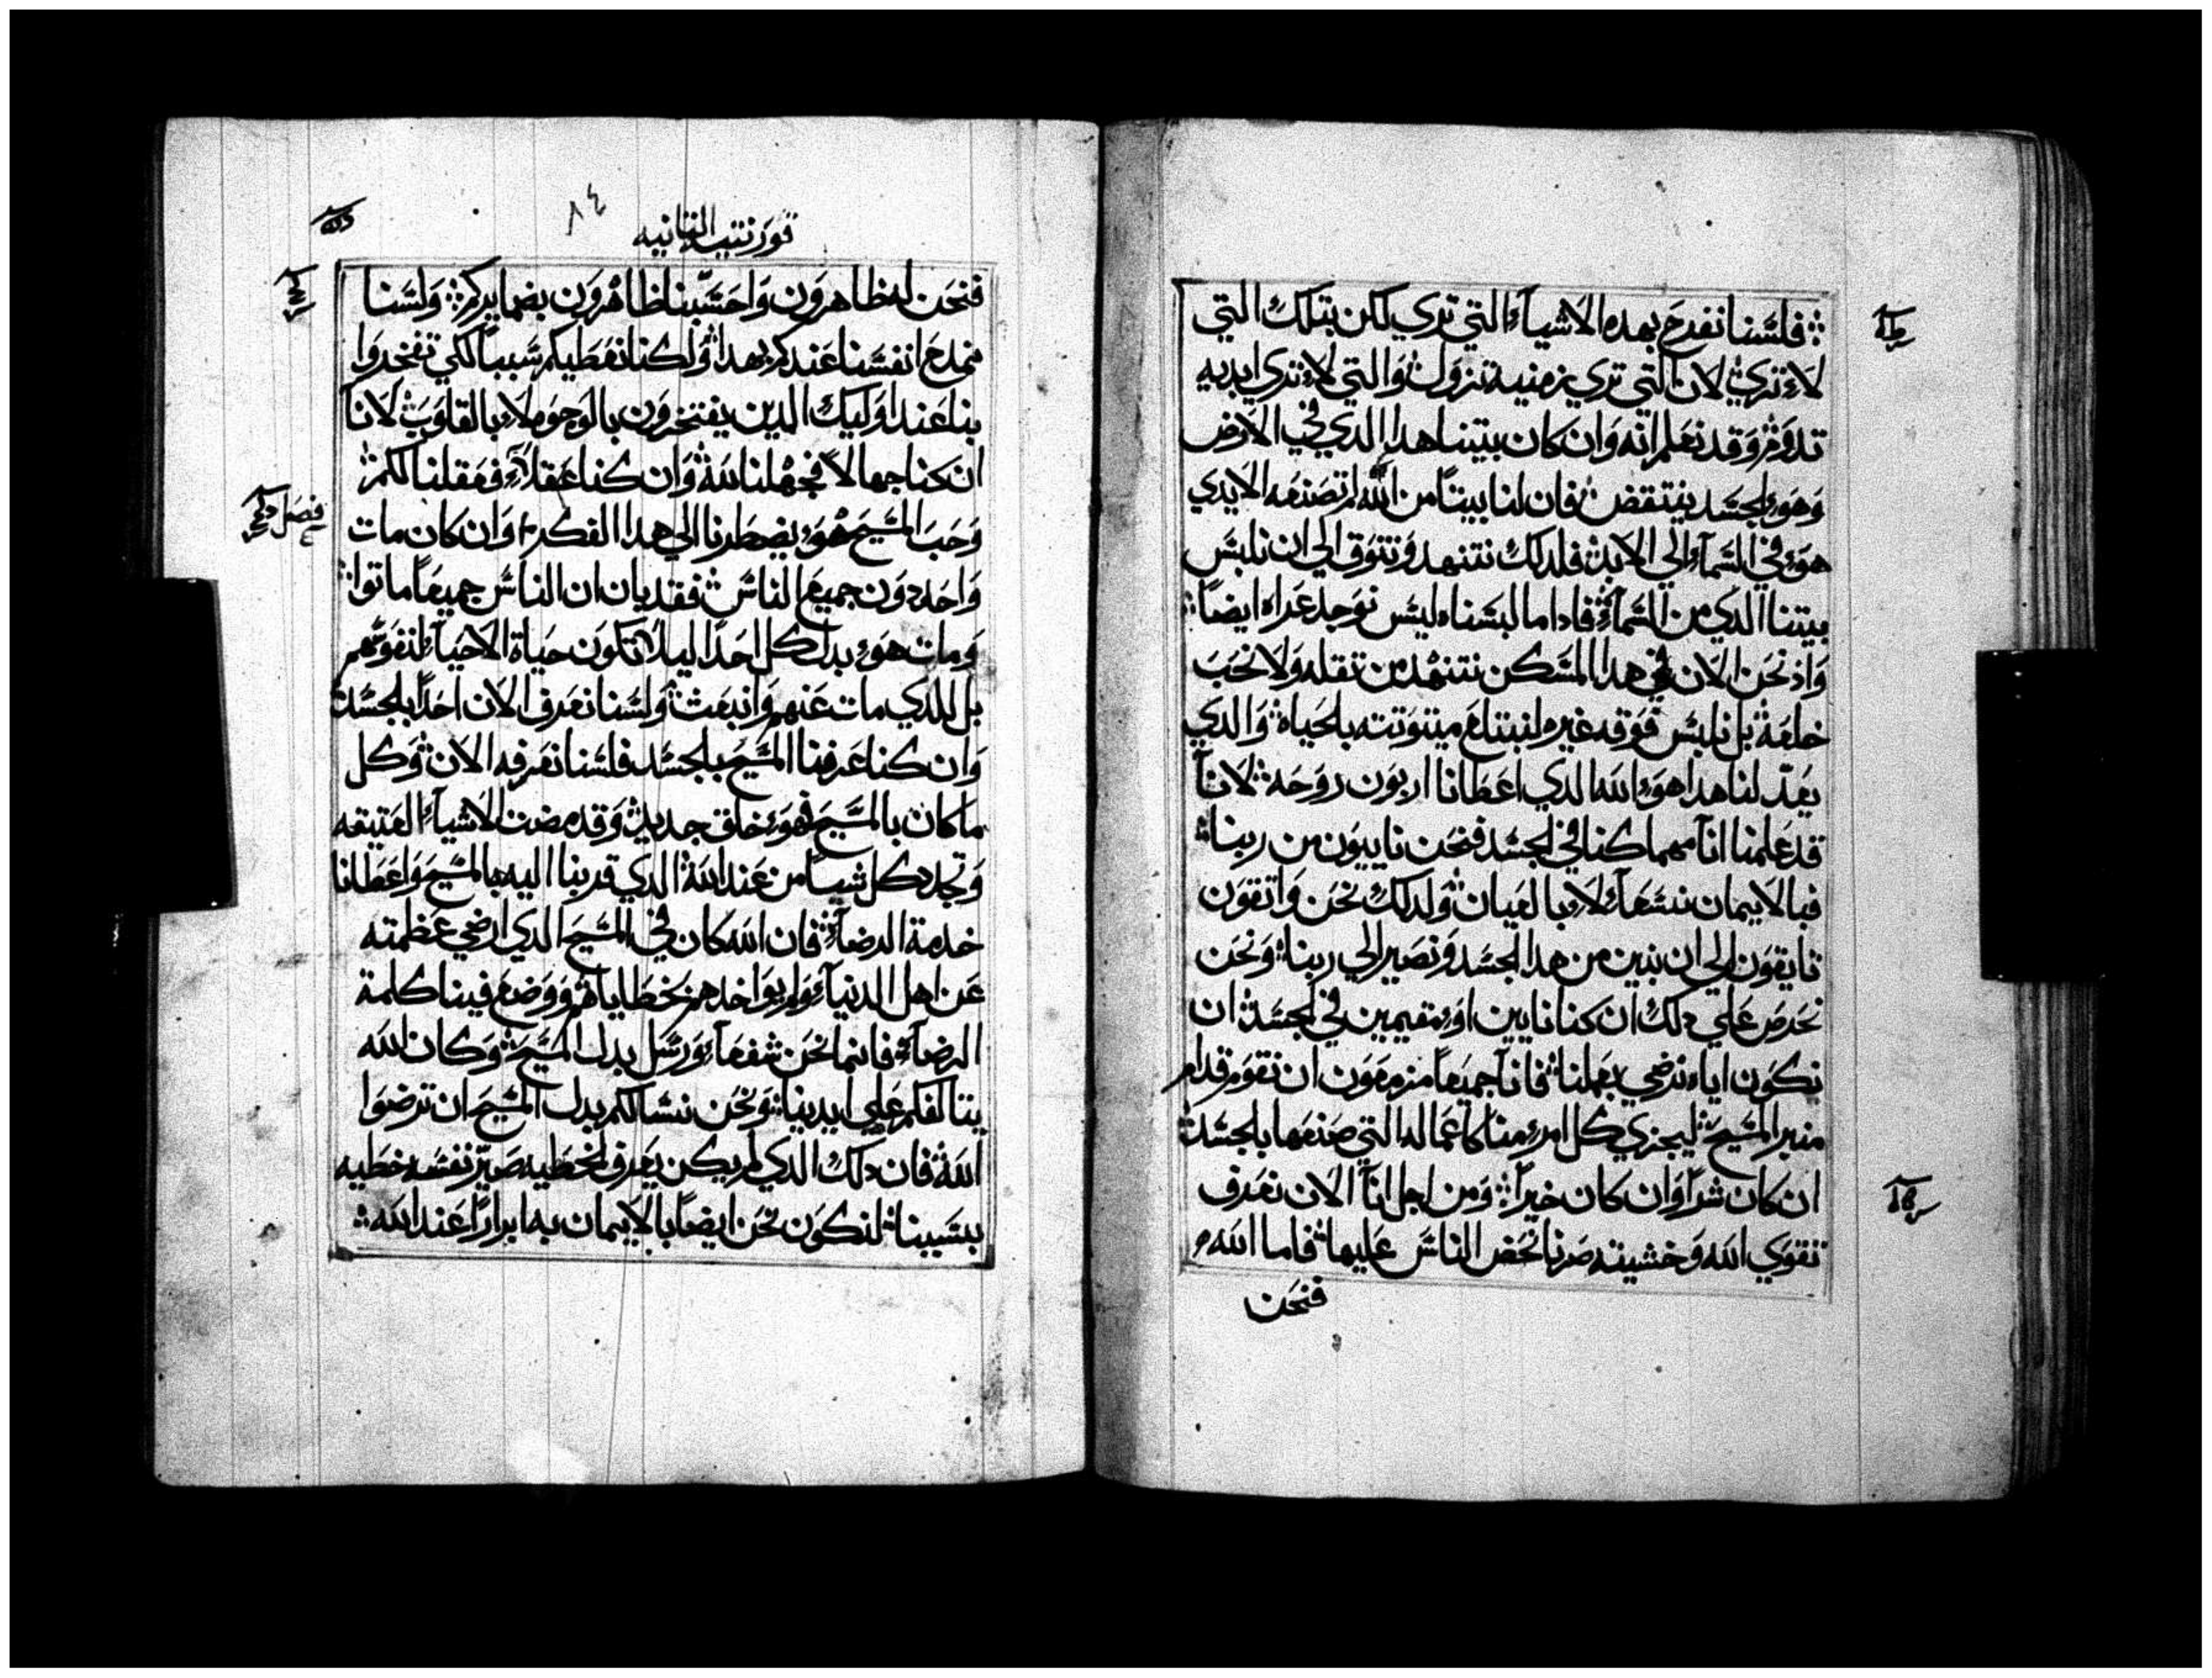 فلسنا نفرح بهده الاشياء التي تري لكن بتلك التي
لاء تري لان التي تري زمنية تزول والتي لاء تري ابديه
تدوم وقد نعلم انه وان كان بيتنا هدا الدي في الارض
وهوء الجسد ينتقض فان لنا بيتاً من الله لم تصنعه الايدي
هوء في السماء الي الابد فلدلك نتنهد ونتوق الي ان نلبس
بيتنا الدي من السماء فادا ما لبسناه ليس نوجد عراه ايضاً
واذ نحن الان في هدا المسكن نتنهد من تقله ولا نحب
خلعه بل نلبس فوقه غيره لنبتلع ميتوتته بالحياه والدي
يعدّ لنا هدا هوء الله الدي اعطانا اربون روحه لانا
قد علمنا انا مهما كنا في الجسد فنحن ناييون من ربنا
فبالايمان نسعاء لاء بالعيان ولدلك نحن واتقون
تايقون الي ان نبين من هدا الجسد ونصير الي ربنا ونحن
نحرص علي دلك ان كنا نايين اوء مقيمين في الجسد ان
نكون اياه نرضي بعملنا فانا جميعاً مزمعون ان نقوم قدام
منبر المسيح ليجزي كل امرء منا كاعماله التي صنعها بالجسد
ان كان شراً وان كان خيراً ومن اجل انا الان نعرف
تقوي الله وخشيته صرنا نحض الناس عليها فاما الله
فنحن
٨٤
قورنتيه التانيه
فنحن له ظاهرون واحسبنا ظاهرون بضمايركم ولسنا
نمدح انفسنا عندكم بهدا ولكنا نعطيكم سبباً لكي تفتخروا
بنا عند اوليك الدين يفتخرون بالوجوه لاء بالقلوب لانا
ان كنا جهالاً فجهلنا لله وان كنا عقلاء فعقلنا لكم
فصل
وحب المسيح هوء يضطرنا الي هدا الفكر وان كان مات
واحد دون جميع الناس فقد بان ان الناس جميعاً ماتوا
ومات هوء بدل كل احداً ليلا تكون حياة الاحياء لنفوسهم
بل للدي مات عنهم وانبعث ولسنا نعرف الان احداً بالجسد
وان كنا عرفنا المسيح بالجسد فلسنا نعرفه الان وكل
ما كان بالمسيح فهوء خلق جديد وقد مضت الاشياء العتيقه
وتجدد كل شيياً من عند الله الدي قربنا اليه بالمسيح واعطانا
خدمة الرضاء فان الله كان في المسيح الدي ارضي عظمته
عن اهل الدنياء ولم يواخدهم بخطاياهم ووضع فينا كلمة
الرضاء فانما نحن شفعاء ورسل بدل المسيح وكان الله
يتالفكم علي ايدينا ونحن نسالكم بدل المسيح ان ترضوا
الله فان دلك الدي لم يكن يعرف الخطيه صيّر نفسه خطيه
بسببنا لنكون نحن ايضاً بالايمان به ابراراً عند الله